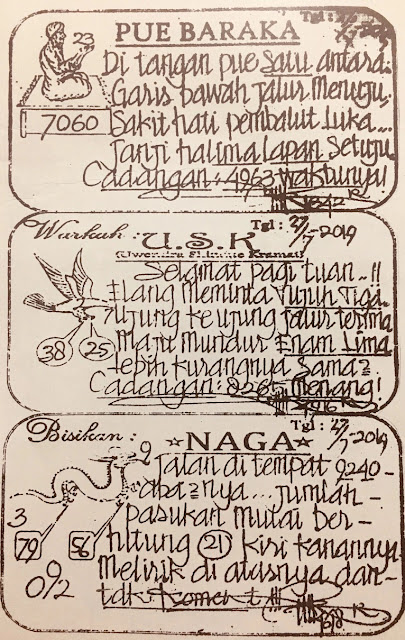 PUE BARAKA
Tgl: 27/7-2019
23
7060
Di tangan pue satu antara.
Garis bawah jalur menuju.
Sakit hati pembalut luka...
Janji halima lapan setuju
Cadangan: 4963 waktunya!
Warkah:
U.S.K
Tgl: 27/7-2019
Selamat pagi tuan..!!
Elang meminta tujuh tiga.
Ujung ke ujung jalur terima
Maju mundur Enam Lima
Lebih kurangnya sama2
Cadangan: menang!
38
25
Bisikan:
☆NAGA☆
Tgl: 27/7-2019
Jalan di tempat 9240-
aba2nya... jumlah-
pasukan mulai ber-
hitung 21 kiri kanannya
Melirik di atasnya dan-
tdk komen
2
3
79
56
092